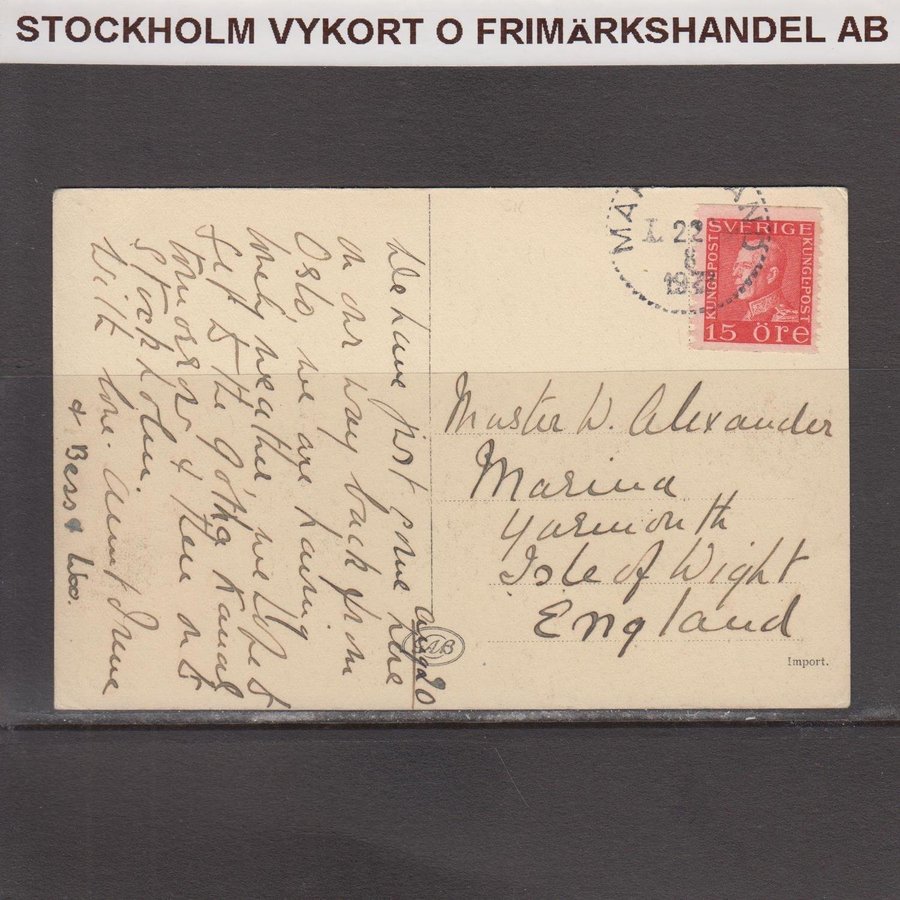 STOCKHOLM VYKORT O FRIMÄRKSHANDEL AB
Aug 20
We have just come here
on our way back from
Oslo, we are having
lovely weather, we hope to
go to the Götha Kanal
tomorrow & then on to
Stockholm.
With love. Aunt Irene
& Bess & Woo.
AB
MÄ ANS
22
8
193
SVERIGE
KUNGL·POST
KUNGL·POST
15 öre
Master W. Alexander
Marina
Yarmouth
Isle of Wight
England
Import.